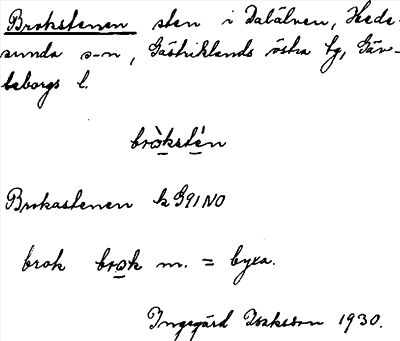 Brokstenen sten i Dalälven, Hede-
sunda s-n, Gästriklands östra tg, Gäv-
leborgs l.
bròkstén
Brokastenen k G91NO
brok brok m. = byxa.
Ingegärd Isaksson 1930.